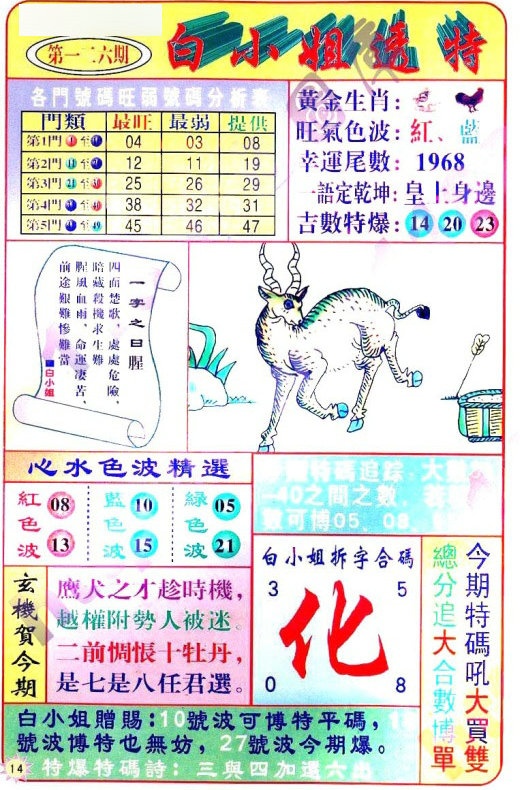 第一二六期
白小姐透特
各門號碼旺弱號碼分析表
門類 最旺 最弱 提供
第1門 至 04 03 08
第2門 至 12 11 19
第3門 至 25 26 29
第4門 至 38 32 31
第5門 至49 45 46 47
黃金生肖:
旺氣色波: 紅、藍
幸運尾數: 1968
一語定乾坤: 皇上身邊
吉數特爆: 14 20 23
一字之曰腥
四面楚歌,處處危險,
暗藏殺機求生難
腥風血雨、命運淒苦、
前途艱難慘難當
白小姐
心水色波精選
紅色波 08 13
藍色波 10 15
綠色波 05 21
特碼追踪,大
-40之間之數,
數可博05、08、
玄機賀今期
鷹犬之才趁時機,
越權附勢人被迷。
二前惆悵十牡丹,
是七是八任君選。
白小姐拆字合碼
3 5
化
0 8
今期特碼吼大買雙
總分追大合數博單
白小姐贈賜:10號波可博特平碼,
號波博特也無妨,27號波今期爆。
特爆特碼詩: 三與四加還六
14